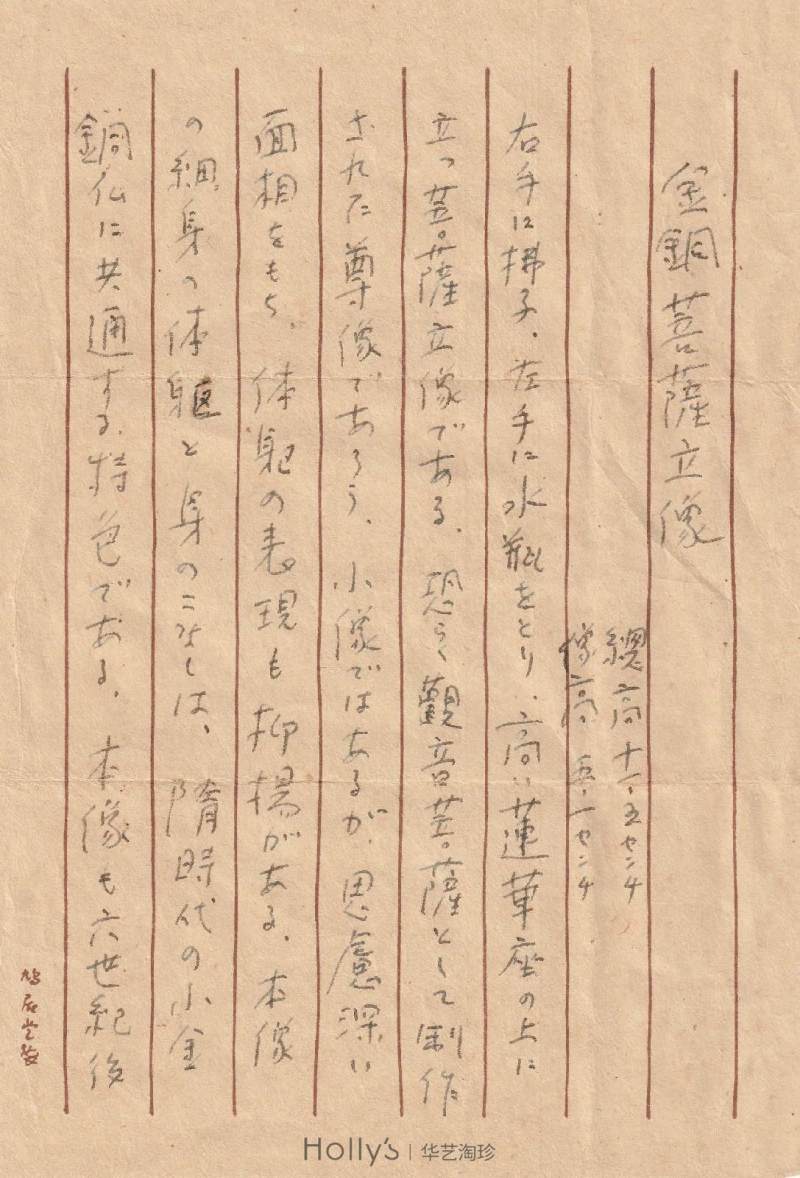 金銅菩薩立像
總高 十一・五センチ
像高 五・一センチ
右手に拂子、左手に水瓶をとり、高い蓮華座の上に
立つ菩薩立像である。恐らく觀音菩薩として制作
された尊像であろう、小像ではあるが、思慮深い
面相をもち、体躯の表現も抑揚がある、本像
の細身の体躯と身のこなしは、隋時代の小金
銅仏に共通する特色である。本像も六世紀後
鳩居堂製
Holly's | 华艺淘珍